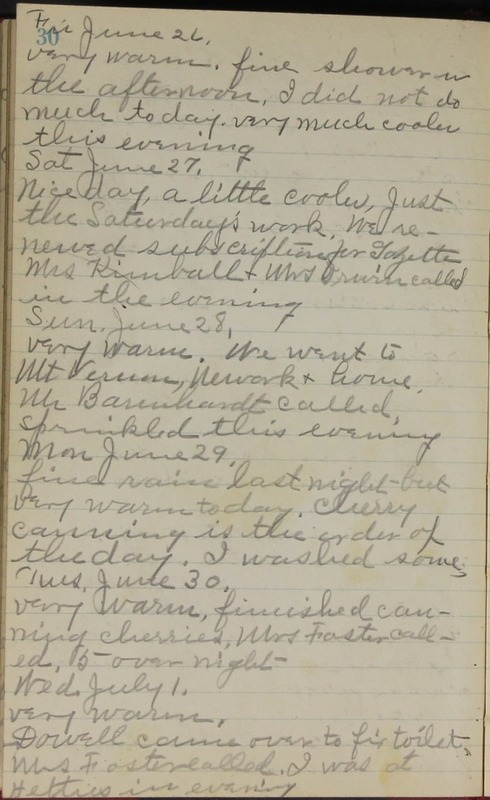 30
Fri June 26.
very warm. fine shower in
the afternoon, I did not do
much today. very much cooler
this evening
Sat June 27.
Nice day, a little cooler, Just
the Saturday's work, We re-
newed subscription for Gazette
Mrs Kimball + Mrs Orwin called
in the evening
Sun. June 28,
very warm. We went to
Mt Vernon, Newark + home.
Mr Barenhardt called,
sprinkled this evening
Mon June 29.
fine rain last night-but
very warm today. Cherry
canning is the order of
the day. I washed some,
Tues, June 30.
very warm, finished can-
ning cherries, Mrs Foster call-
ed, 5 over night-
Wed. July 1.
very warm.
Dowell came over to fix toilet.
Mrs Foster called. I was at
Hetties in evening